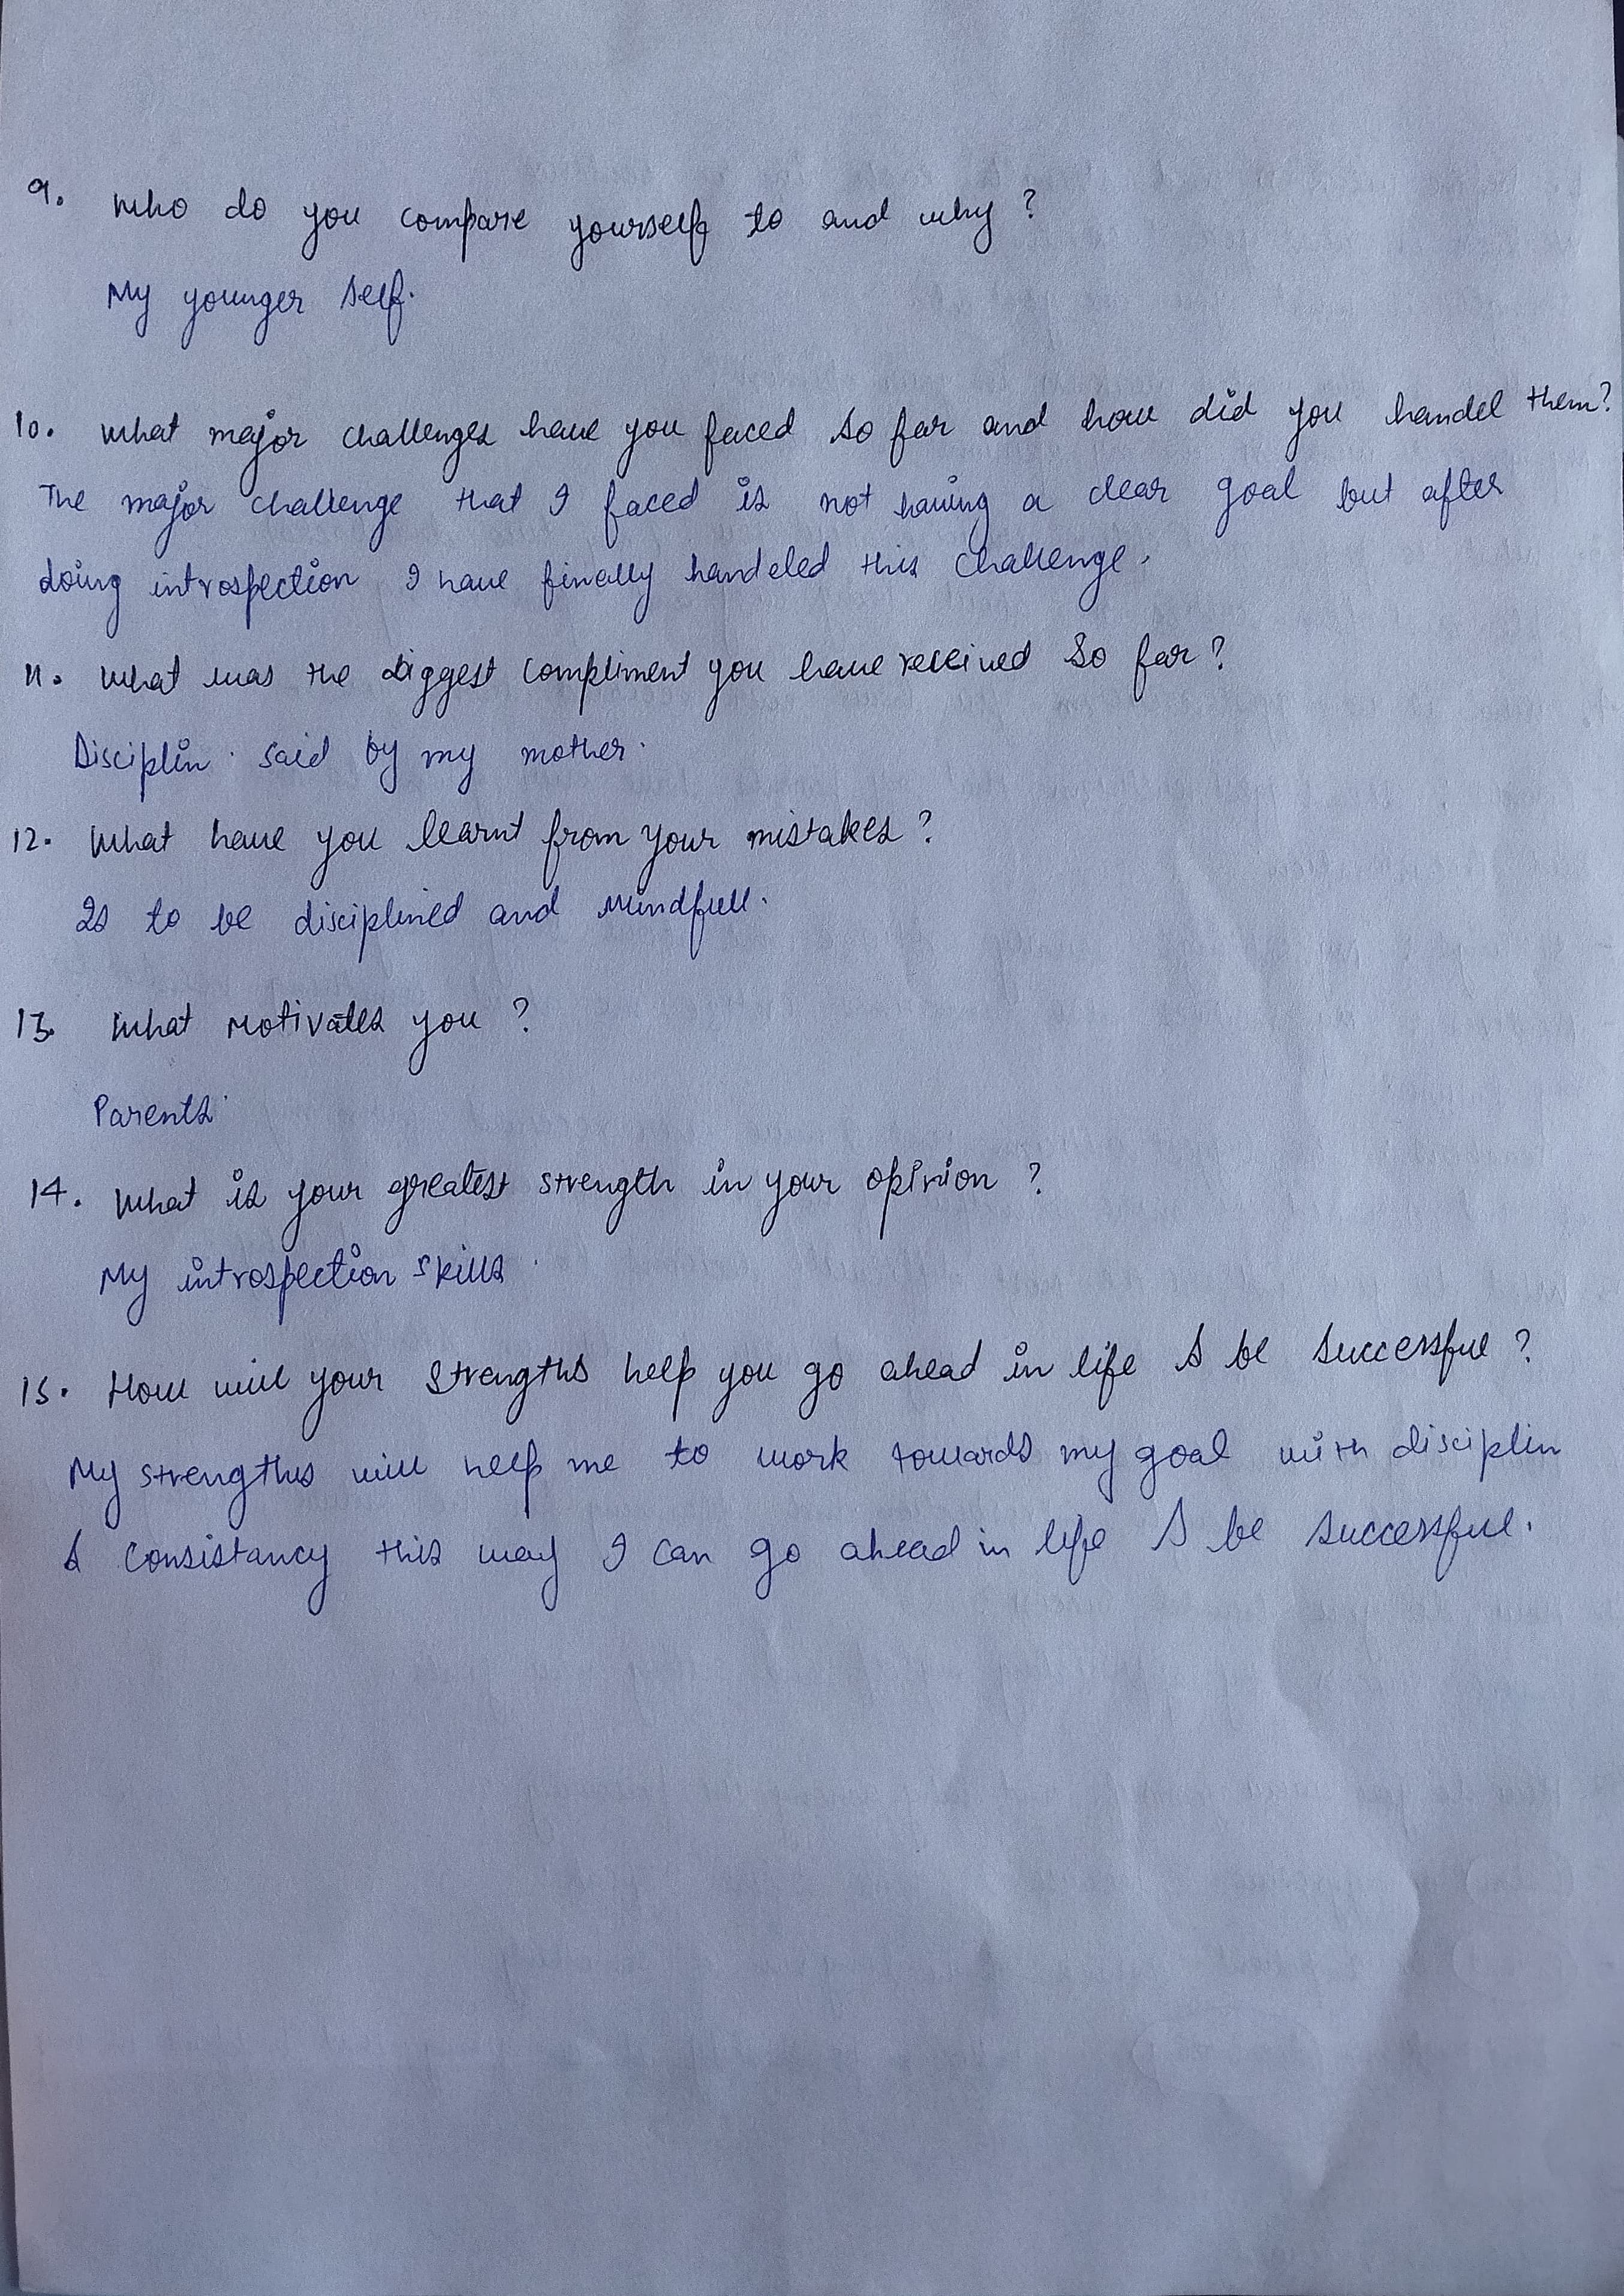 9. Who do you compare yourself to and why ?
My younger self.
10. What major challenges have you faced so far and how did you handel them?
The major challenge that I faced is not having a clear goal but after
doing introspection I have finally handeled this challenge.
11. What was the biggest compliment you have received so far ?
Disciplin . said by my mother.
12. What have you learnt from your mistakes ?
Is to be disciplined and mindfull.
13. What motivates you ?
Parents.
14. What is your greatest strength in your opinion ?
My introspection skills.
15. How will your strengths help you go ahead in life & be successful ?
My strengths will help me to work towards my goal with disciplin
& consistancy this way I can go ahead in life & be successful.